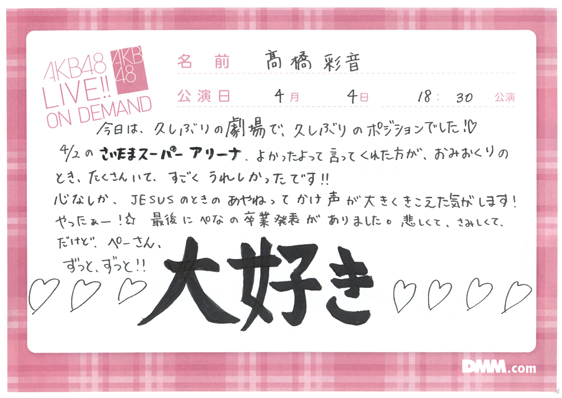 AKB48
LIVE!!
ON DEMAND
AKB
48
名前 髙橋彩音
公演日 4月 4日 18:30 公演
今日は、久しぶりの劇場で、久しぶりのポジションでした!♡
4/2の さいたまスーパーアリーナ、よかったよって言ってくれた方が、おみおくりの
とき、たくさんいて、すごくうれしかったです!!
心なしか、JESUSのときのあやねってかけ声が大きくきこえた気がします!
やったぁー!☆ 最後にぺなの卒業発表がありました。悲しくて、さみしくて、
だけど、ぺーさん、
ずっと、ずっと!! 大好き
DMM.com